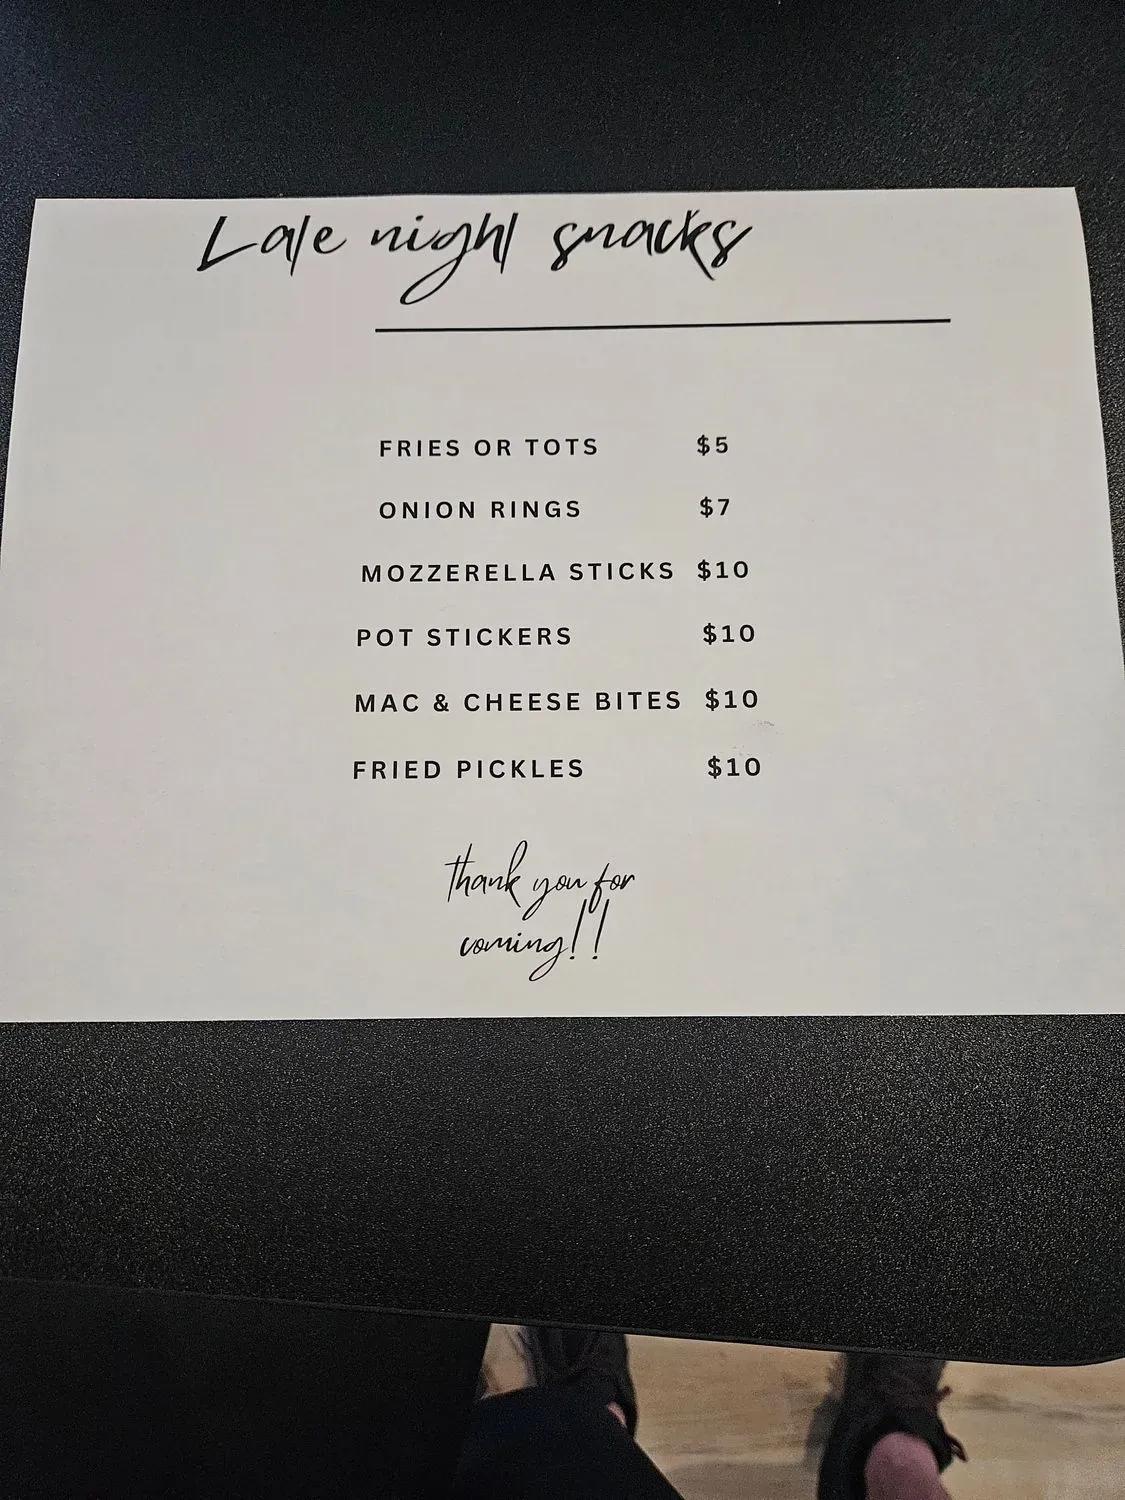 Late night snacks
FRIES OR TOTS $5
ONION RINGS $7
MOZZERELLA STICKS $10
POT STICKERS $10
MAC & CHEESE BITES $10
FRIED PICKLES $10
thank you for
coming!!